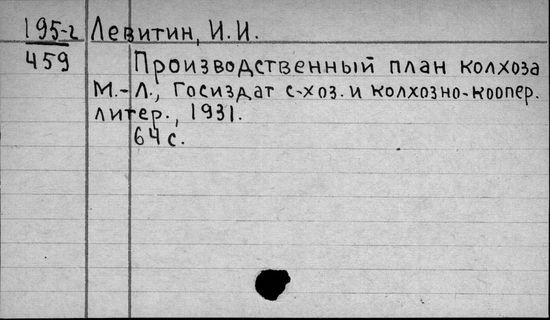 195-г Левитин, И.И.
459 Производственный план колхоза
М.-Л., Госиздат с-хоз. и колхозно-коопер.
литер., 1931.
64 с.